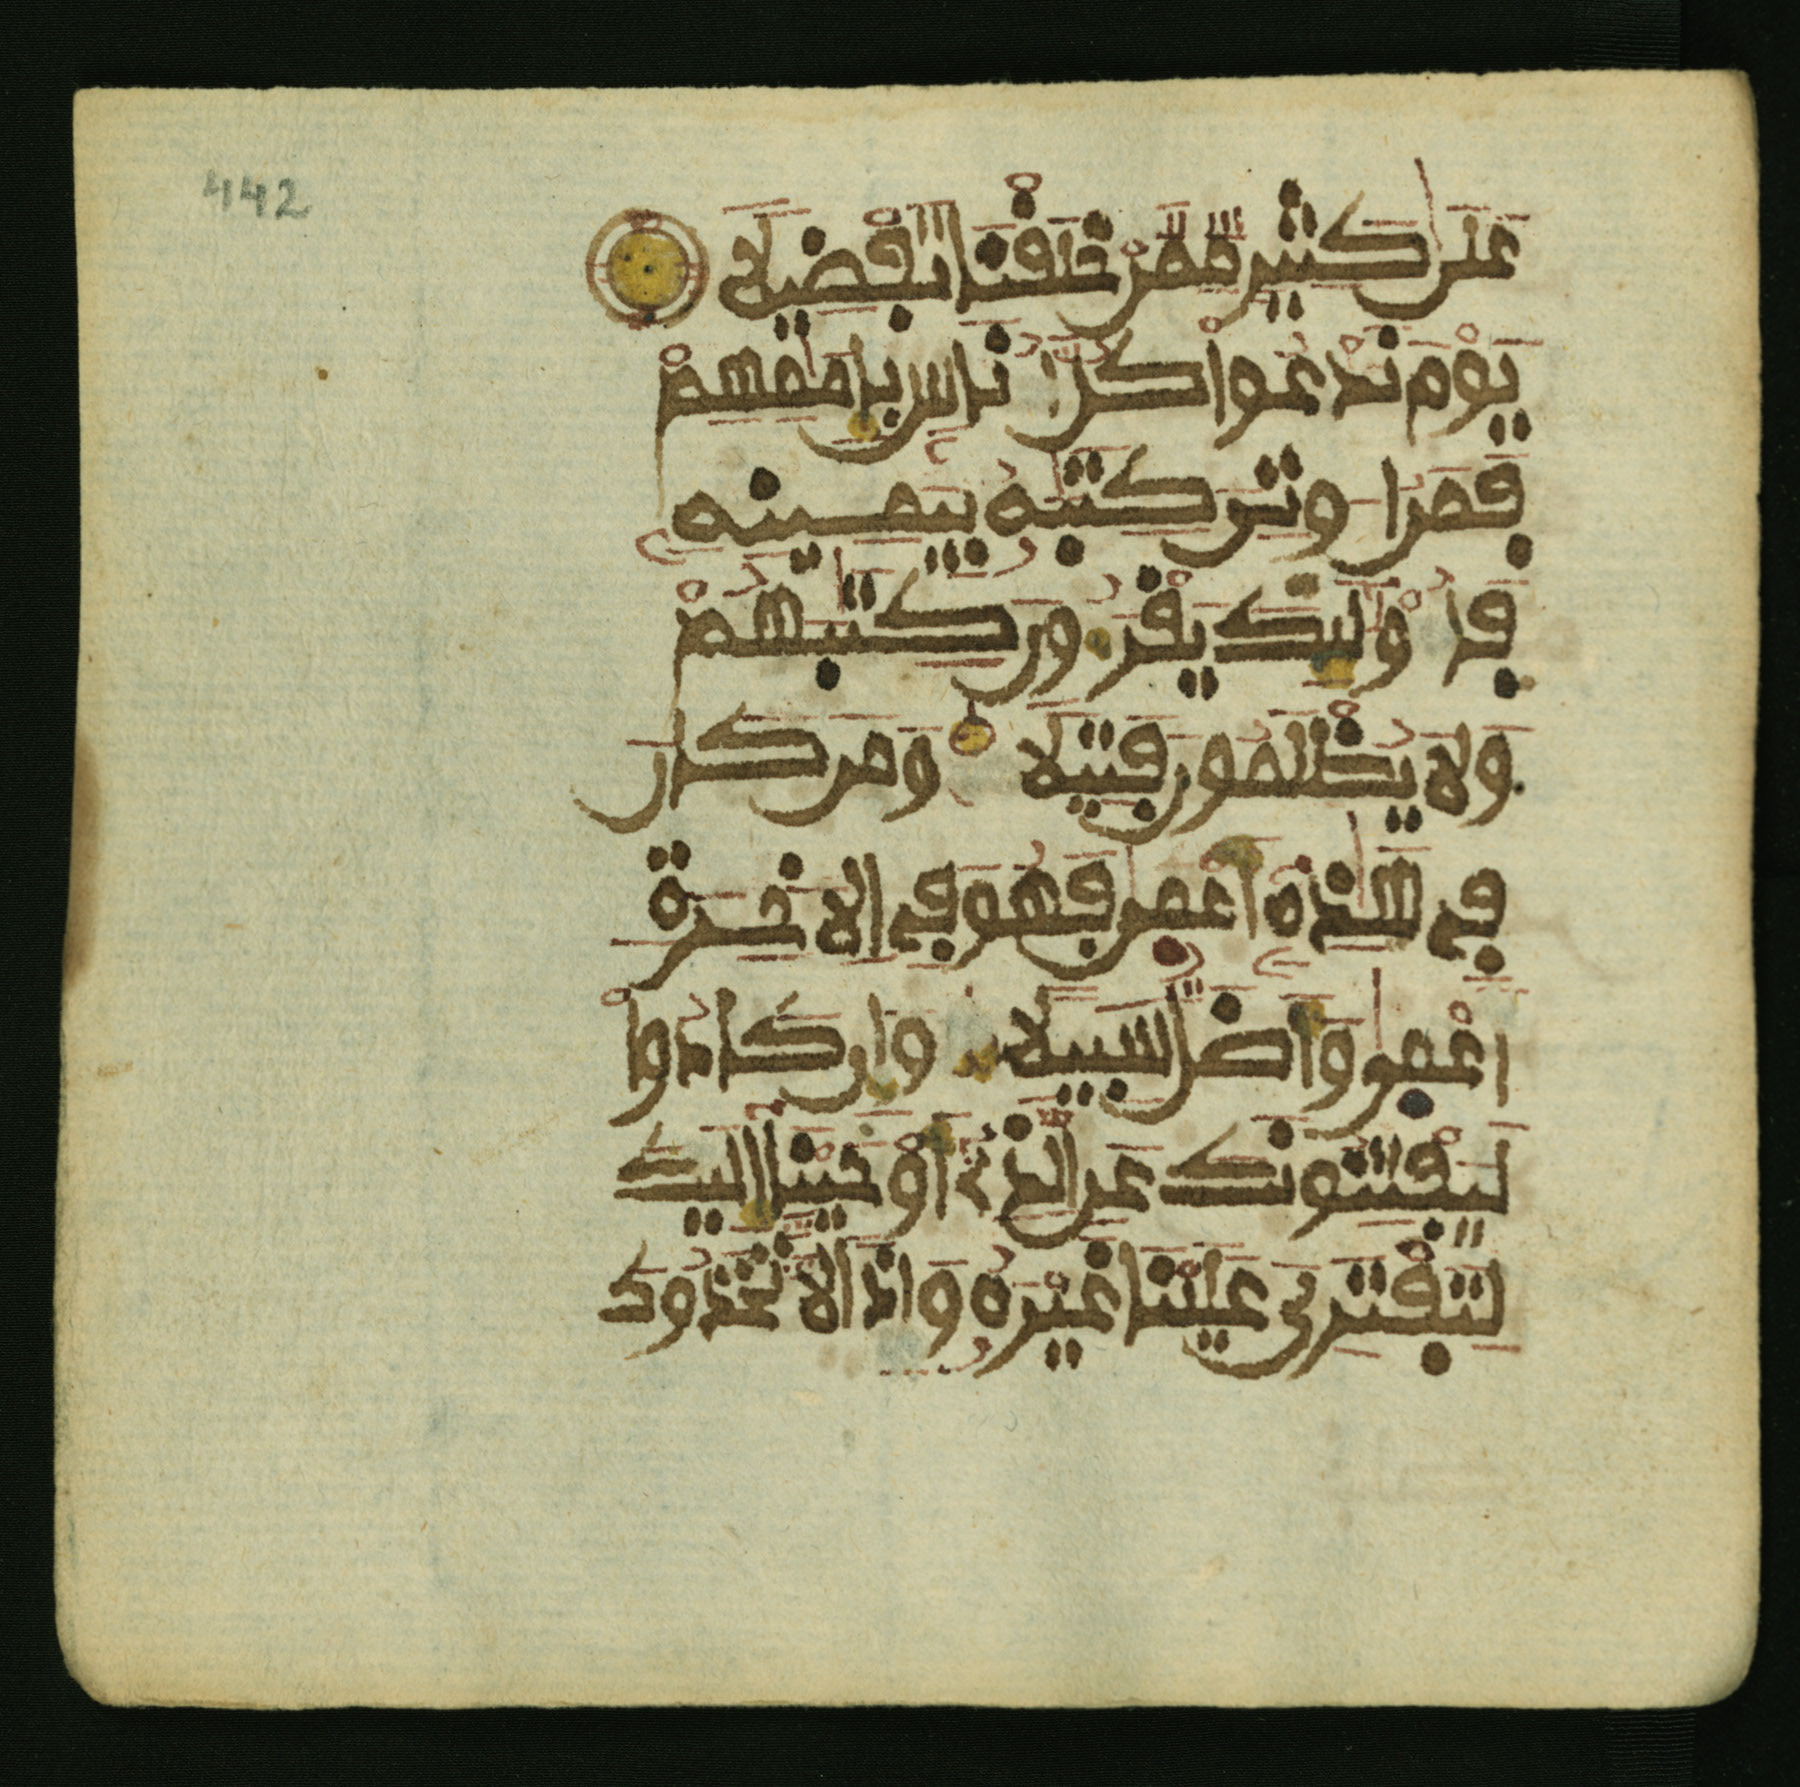 442
عَلَىٰ كَثِيرٍ مِّمَّنْ خَلَقْنَا تَفْضِيلًا
يَوْمَ نَدْعُوا۟ كُلَّ أُنَاسٍۭ بِإِمَٰمِهِمْ
فَمَنُ ا۟وتِىَ كِتَٰبَهُۥ بِيَمِينِهِۦ
فَأُو۟لَٰٓئِكَ يَقْرَءُونَ كِتَٰبَهُمْ
وَلَا يُظْلَمُونَ فَتِيلًا وَمَن كَانَ
فِى هَٰذِهِۦٓ أَعْمَىٰ فَهُوَ فِى الَاخِرَةِ
أَعْمَىٰ وَأَضَلُّ سَبِيلًا وَإِن كَادُوا۟
لَيَفْتِنُونَكَ عَنِ الَّذِىٓ أَوْحَيْنَآ إِلَيْكَ
لِتَفْتَرِىَ عَلَيْنَا غَيْرَهُۥ وَإِذًا لَّاتَّخَذُوكَ